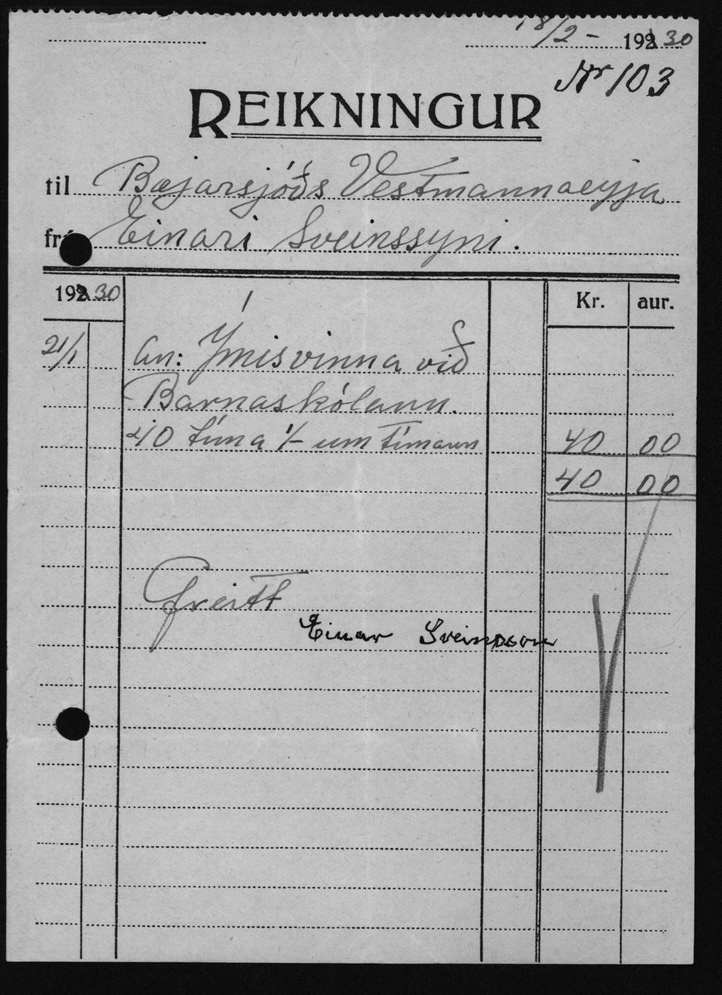 18/2 - 1930
Nr 103
REIKNINGUR
til Bæjarsjóðs Vestmannaeyja
frá Einari Sveinssyni.
1930 Kr. aur.
21/1 an: Ýmisvinna við
Barnaskólann.
40 tíma 1/- um tímann 40 00
40 00
Greitt
Einar Sveinsson